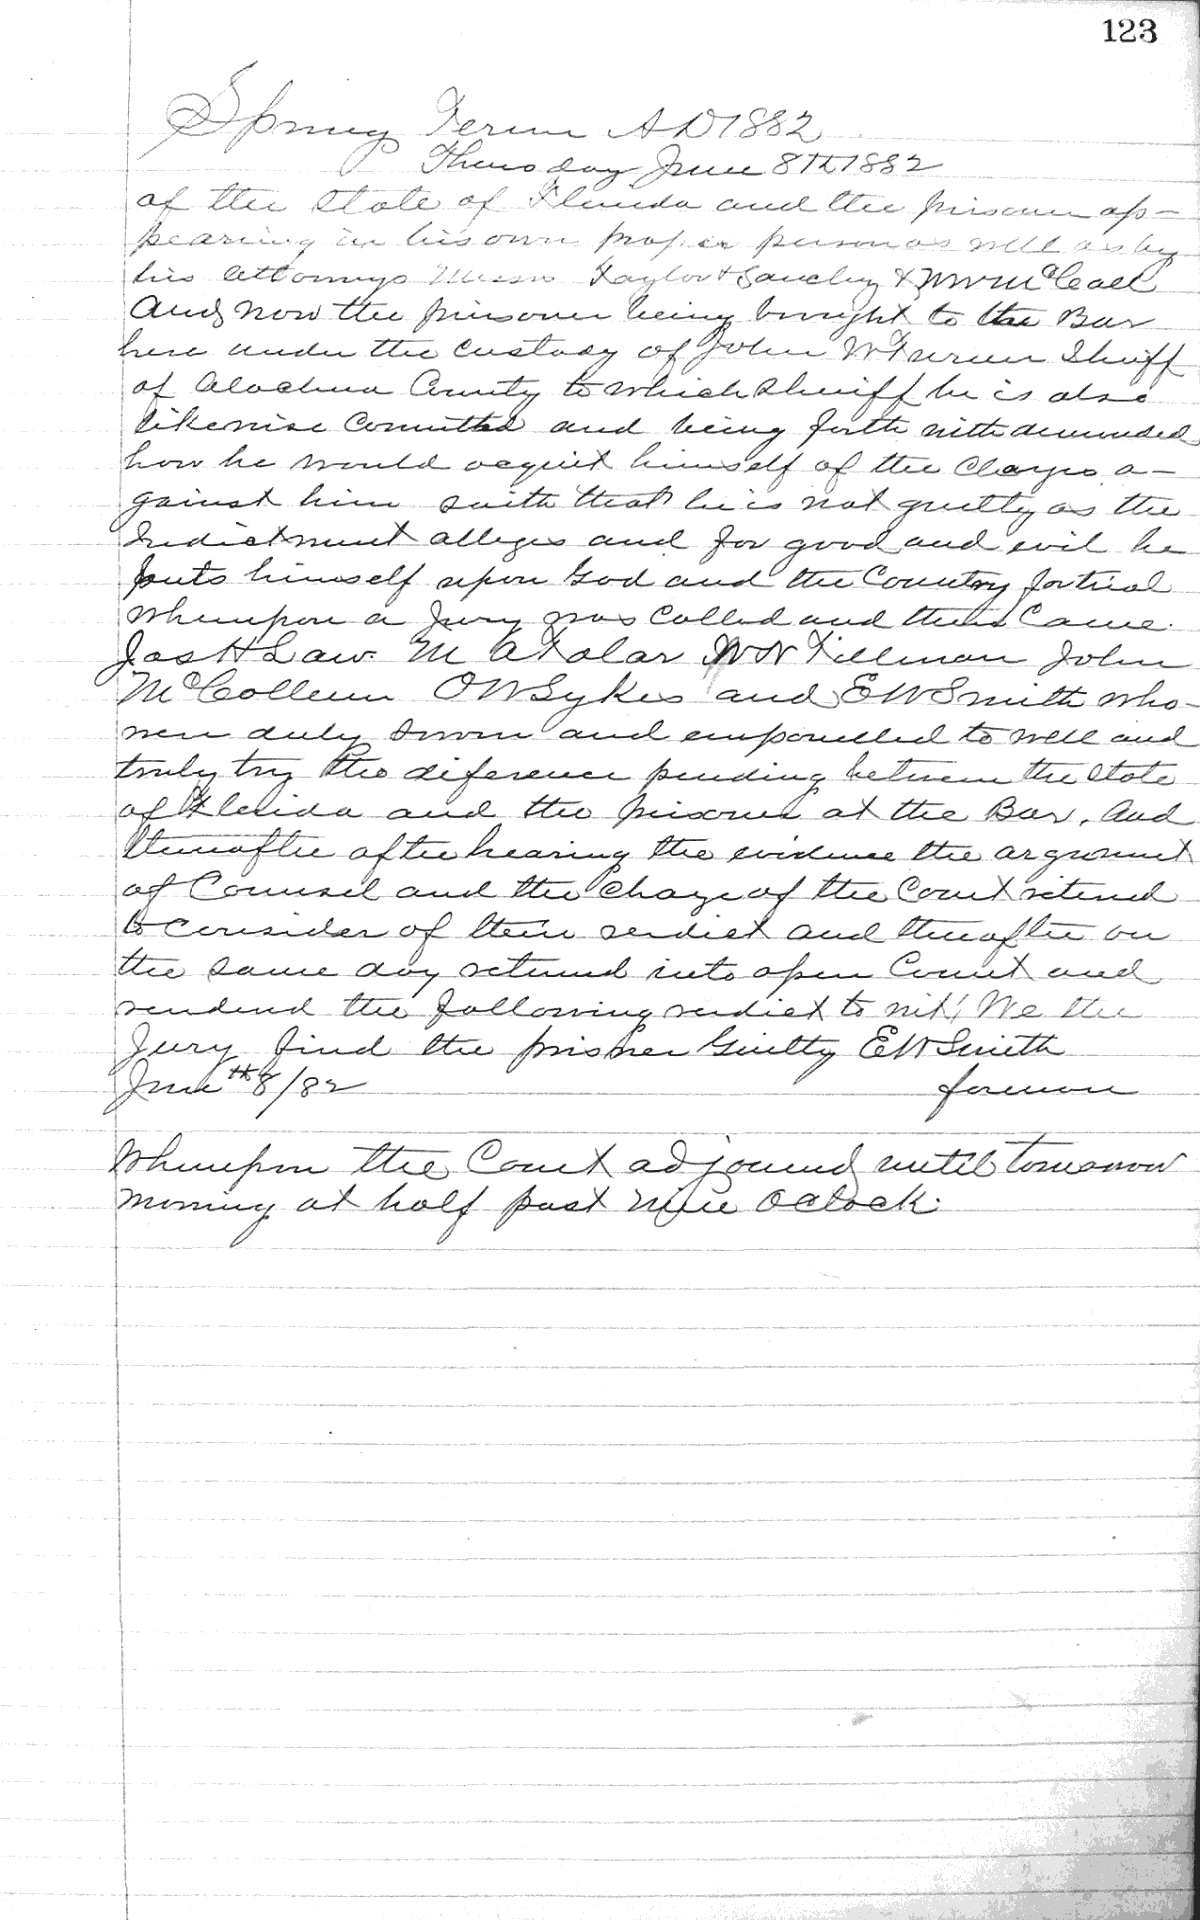 123
Spring Term A D 1882
Thursday June 8th 1882
of the State of Florida and the prisoner ap-
pearing in his own proper person as well as by
his attorneys Messrs Taylor & Sanchez & McCall
And now the prisoner being brought to the Bar
here under the custody of John W Turner Sheriff
of Alachua County to which Sheriff he is also
likewise Committed and being forth with demanded
how he would acquit himself of the Charges a-
gainst him saith that he is not guilty as the
Indictment alleges and for good and evil he
puts himself upon God and the Country for trial
Whereupon a Jury was Called and there Came
Jas H Law M A Tolar W N Tillman John
McCollum O W Sykes and E W Smith who
were duly sworn and empanelled to well and
truly try the diference pending between the State
of Florida and the prisoner at the Bar. And
thereafter after hearing the evidence the argument
of Counsel and the Charge of the Court retired
to consider of their verdict and thereafter on
the same day returned into open Court and
rendered the following verdict to wit! We the
Jury find the prisner Guilty E W Smith
June th 8/82 foreman
Whereupon the Court adjourned until tomorrow
morning at half past Nine Oclock.